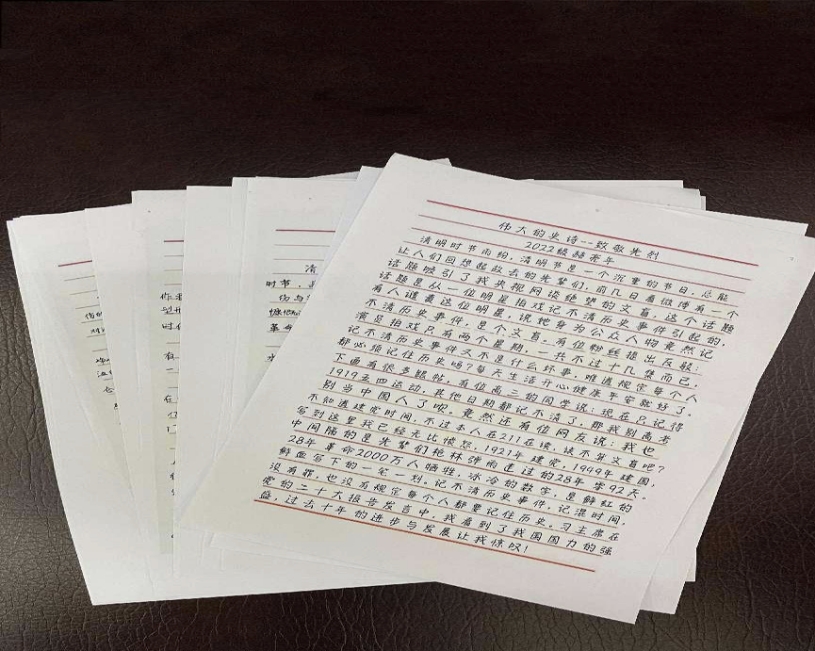 伟大的史诗--致敬先烈
2022级赫老年
清明时节雨纷，清明节是一个沉重的节日，总能
让人们回想起故去的先辈们，前几日看微博有一个
话题吸引了我央视网谈绝望的文盲，这个话题
话题是从一位明星拍戏记不清历史事件引起的，
有人谴责这位明星，说她身为公众人物竟然记
不清历史事件，是个文盲。有位粉丝提出反驳：
演员拍戏只有两个星期，一共不过十几集而已，
记不清历史事件又不是什么坏事，难道规定每个人
都必须记住历史吗？每天生活开心健康平安就好了。
下面有很多跟帖，有位高三的同学说：现在只记得
1919五四运动，其他日期都记不清了，那我别高考
别当中国人了呗，竟然还有位网友说：我也
不知道建党时间，不过本人在211在读，谈不写文盲吧？
写到这里我已经无比愤怒，1921年建党，1949年建国，
中间隔的是先辈们枪林弹雨走过的28年零92天。
28年革命2000万人牺牲，冰冷的数字，是鲜红的
鲜血写下的一笔一划，记不清历史事件，记混时间，
没有罪，也没有规定每个人都要记住历史。习主席在
党的二十大报告发言中，我看到了我国国力的强
盛，过去十年的进步与发展让我惊叹！